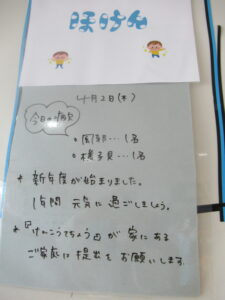 4月2日(木)
今日の病欠
・風邪…1名
・様子見…1名
* 新年度が始まりました。
1年間 元気に過ごしましょう。
* 『けんこうちょう』が 家にある
ご家庭は 提出を お願いします